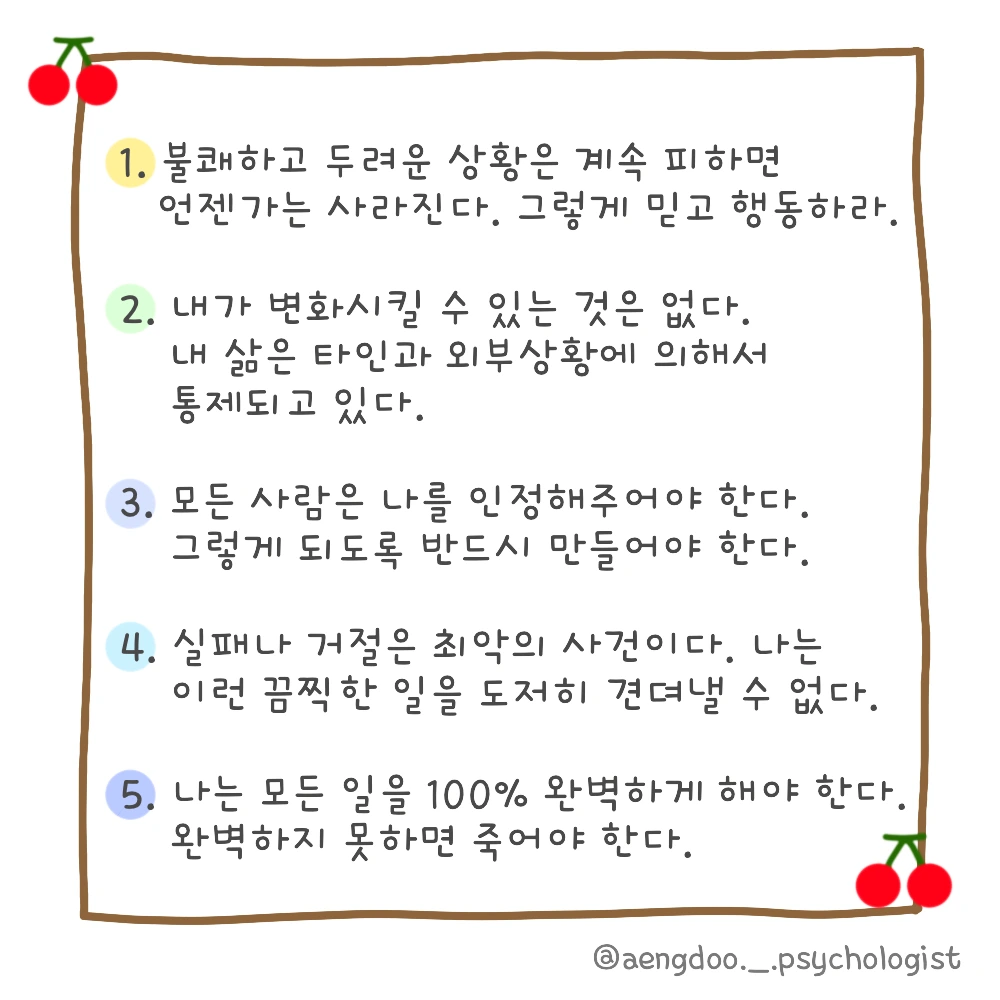 1. 불쾌하고 두려운 상황은 계속 피하면
언젠가는 사라진다. 그렇게 믿고 행동하라.
2. 내가 변화시킬 수 있는 것은 없다.
내 삶은 타인과 외부상황에 의해서
통제되고 있다.
3. 모든 사람은 나를 인정해주어야 한다.
그렇게 되도록 반드시 만들어야 한다.
4. 실패나 거절은 최악의 사건이다. 나는
이런 끔찍한 일을 도저히 견뎌낼 수 없다.
5. 나는 모든 일을 100% 완벽하게 해야 한다.
완벽하지 못하면 죽어야 한다.
@aengdoo._.psychologist